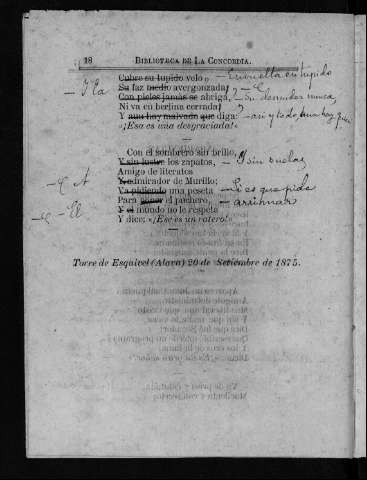 18 BIBLIOTECA DE LA CONCORDIA.
Cubre su tupido velo, — Envuelta en tupido
— Y la Su faz medio avergonzada;
Con pieles jamás se abriga,
Ni va en berlina cerrada;
Y aun hay malvado que diga: — aun y todo, hay quien
«¡Esa es una desgraciada!»
Con el sombrero sin brillo,
Y sin lustre los zapatos, — Y sin suelas
Amigo de literatos
Y admirador de Murillo;
Va pidiendo una peseta — Si es que pide
Para poner el puchero, — arrimar
— El Y el mundo no le respeta
Y dice: «¡Ese es un ratero!»
Torre de Esquivel (Alava) 20 de Setiembre de 1875.